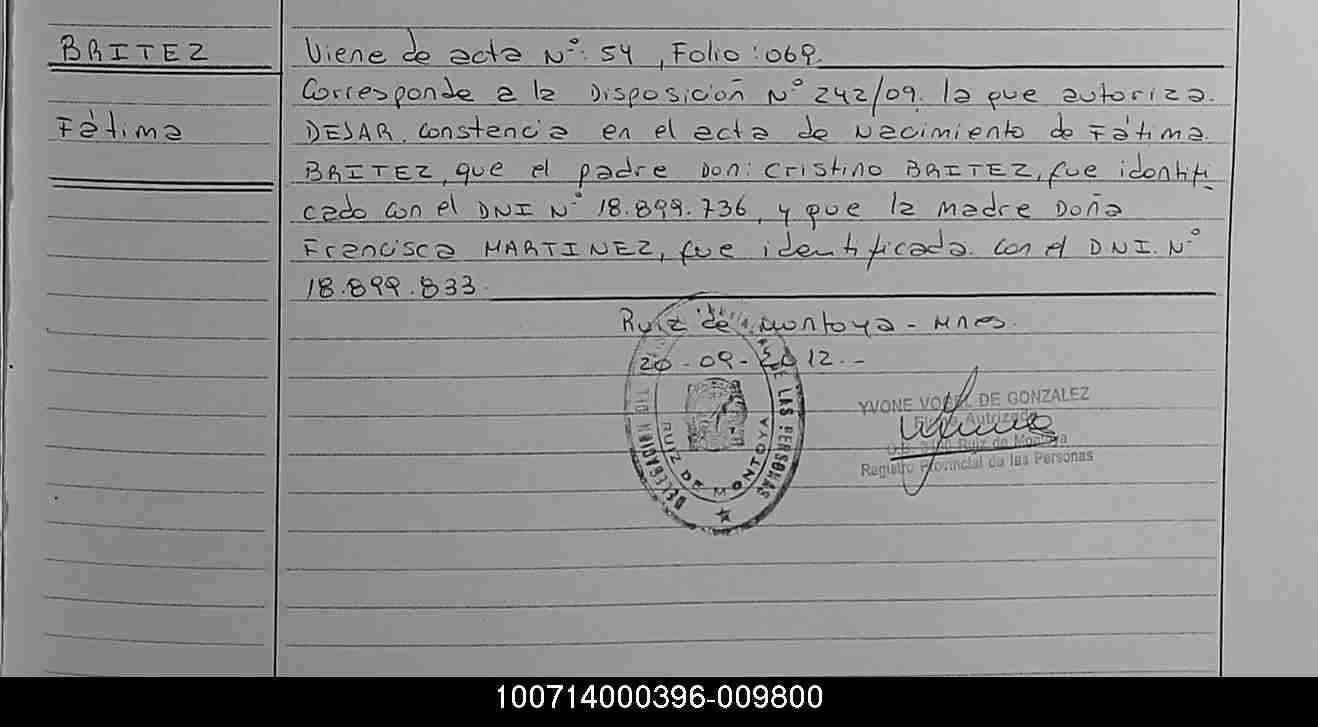 BRITEZ
Fátima
Viene de acta Nº: 54, Folio: 069.
Corresponde a la Disposición Nº 242/09. la que autoriza.
DEJAR. constancia en el acta de Nacimiento de Fátima.
BRITEZ, que el padre Don: Cristino BRITEZ, fue identifi
cado con el DNI Nº 18.899.736, y que la madre Doña
Francisca MARTINEZ, fue identificada. con el DNI. Nº
18.899.833.
Ruiz de Montoya - Mnes.
20-09-2012.-
DE LAS PERSONAS
DELEGACION
RUIZ DE MONTOYA
YVONE VOGEL DE GONZALEZ
Firma Autrizada
Ruiz de Montoya
Registro Provincial de las Personas
100714000396-009800